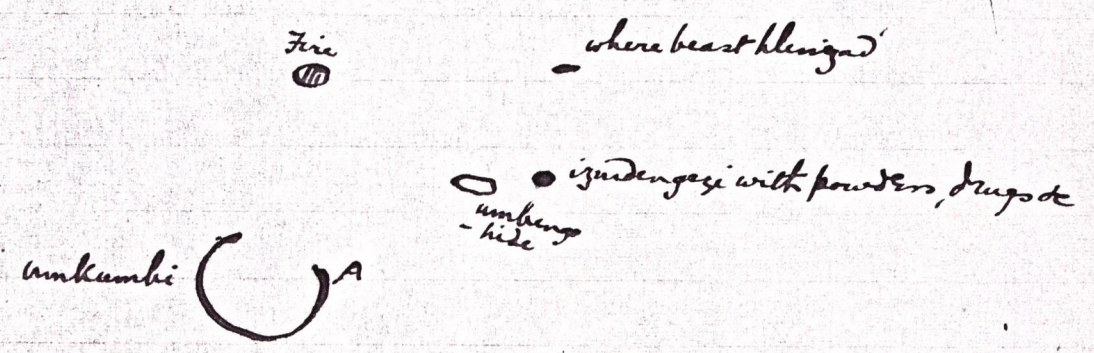 Fire
where beast hlinzad
izindengezi with powders, drugs &c
umbengo
- hide
umkumbi
A